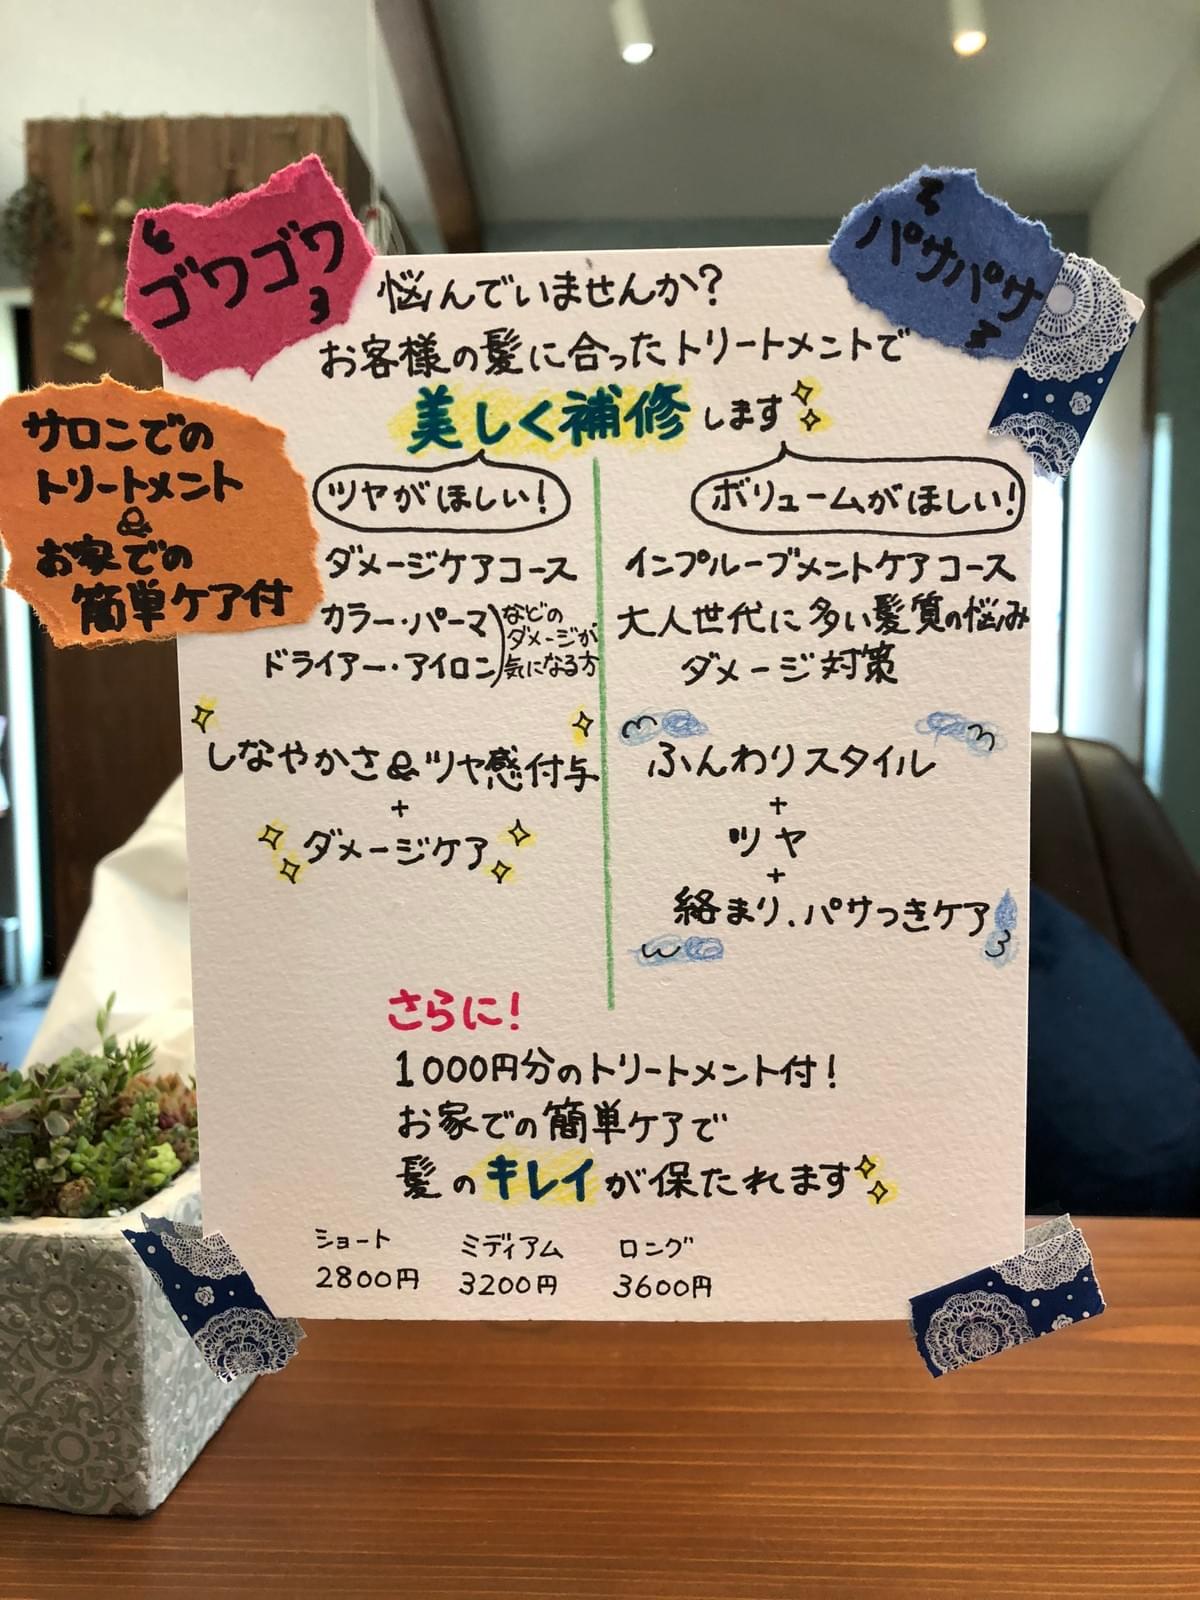 ゴワゴワ
パサパサ
悩んでいませんか?
お客様の髪に合ったトリートメントで
美しく補修します
サロンでの
トリートメント
&
お家での
簡単ケア付
ツヤがほしい!
ダメージケアコース
カラー・パーマ
ドライアー・アイロン
などの
ダメージが
気になる方
しなやかさ&ツヤ感付与
+
ダメージケア
ボリュームがほしい!
インプルーブメントケアコース
大人世代に多い髪質の悩み
ダメージ対策
ふんわりスタイル
+
ツヤ
+
絡まり、パサつきケア
さらに!
1000円分のトリートメント付!
お家での簡単ケアで
髪のキレイが保たれます
ショート ミディアム ロング
2800円 3200円 3600円